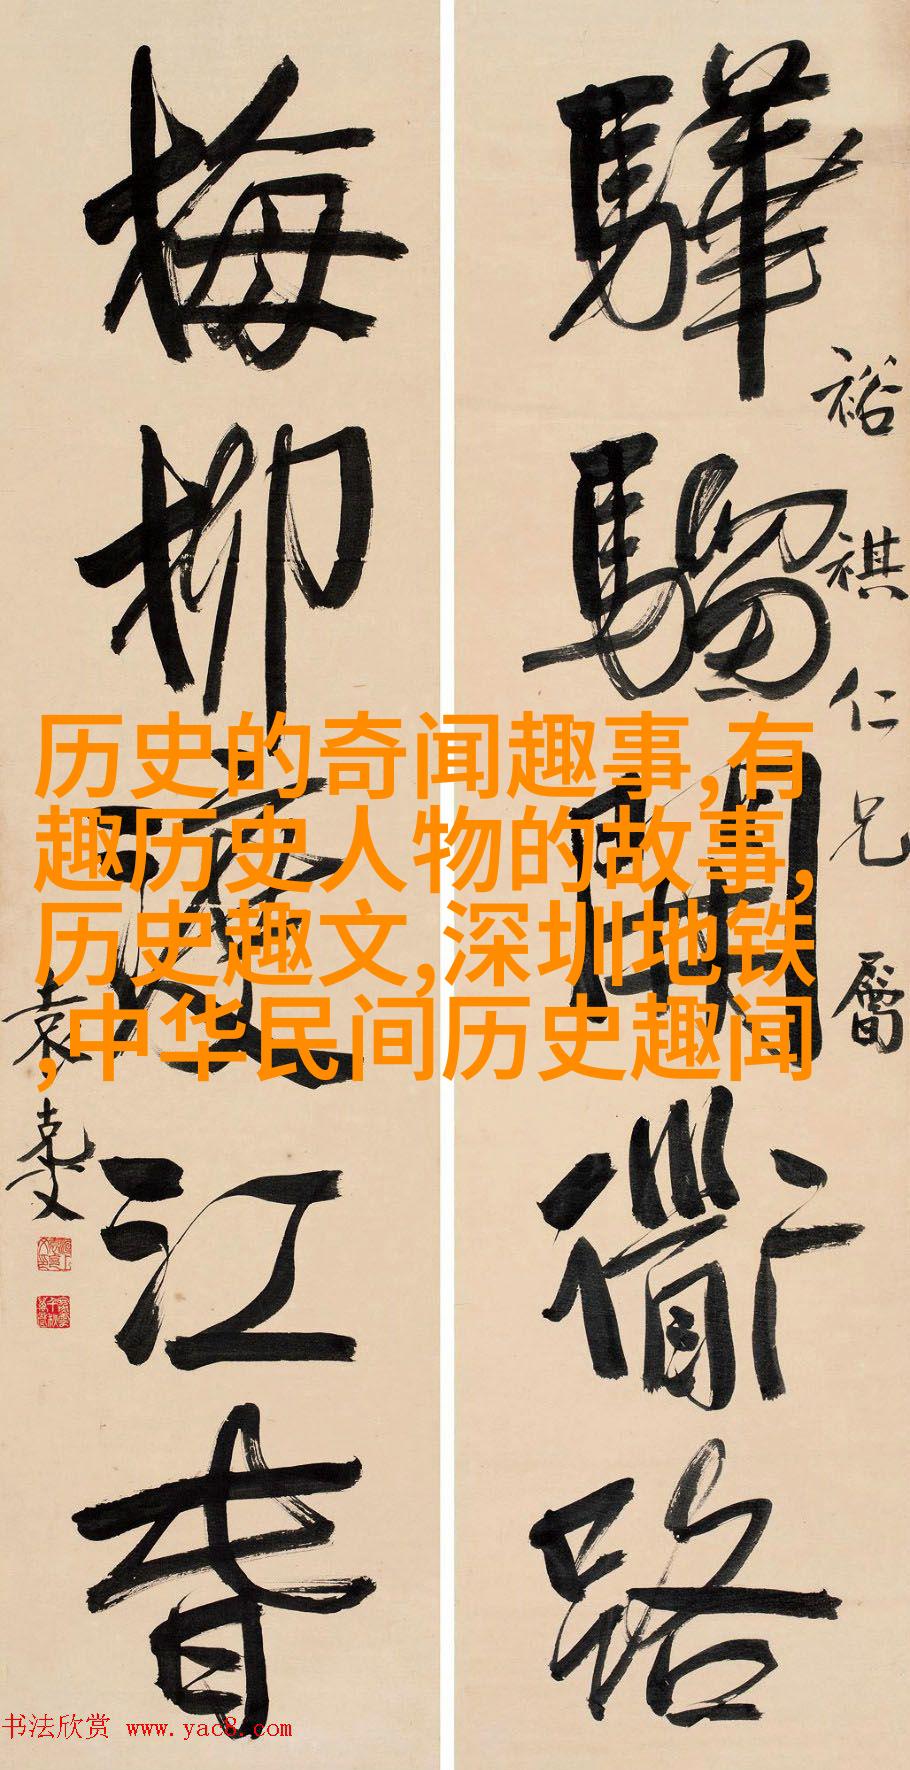 裕祺仁兄屬
驊騮開衜路
梅柳渡江春
袁克文
历史的奇闻趣事,有
趣历史人物的故事,
历史趣文,深圳地铁
,中华民间历史趣闻
书法欣赏 www.yac8.com